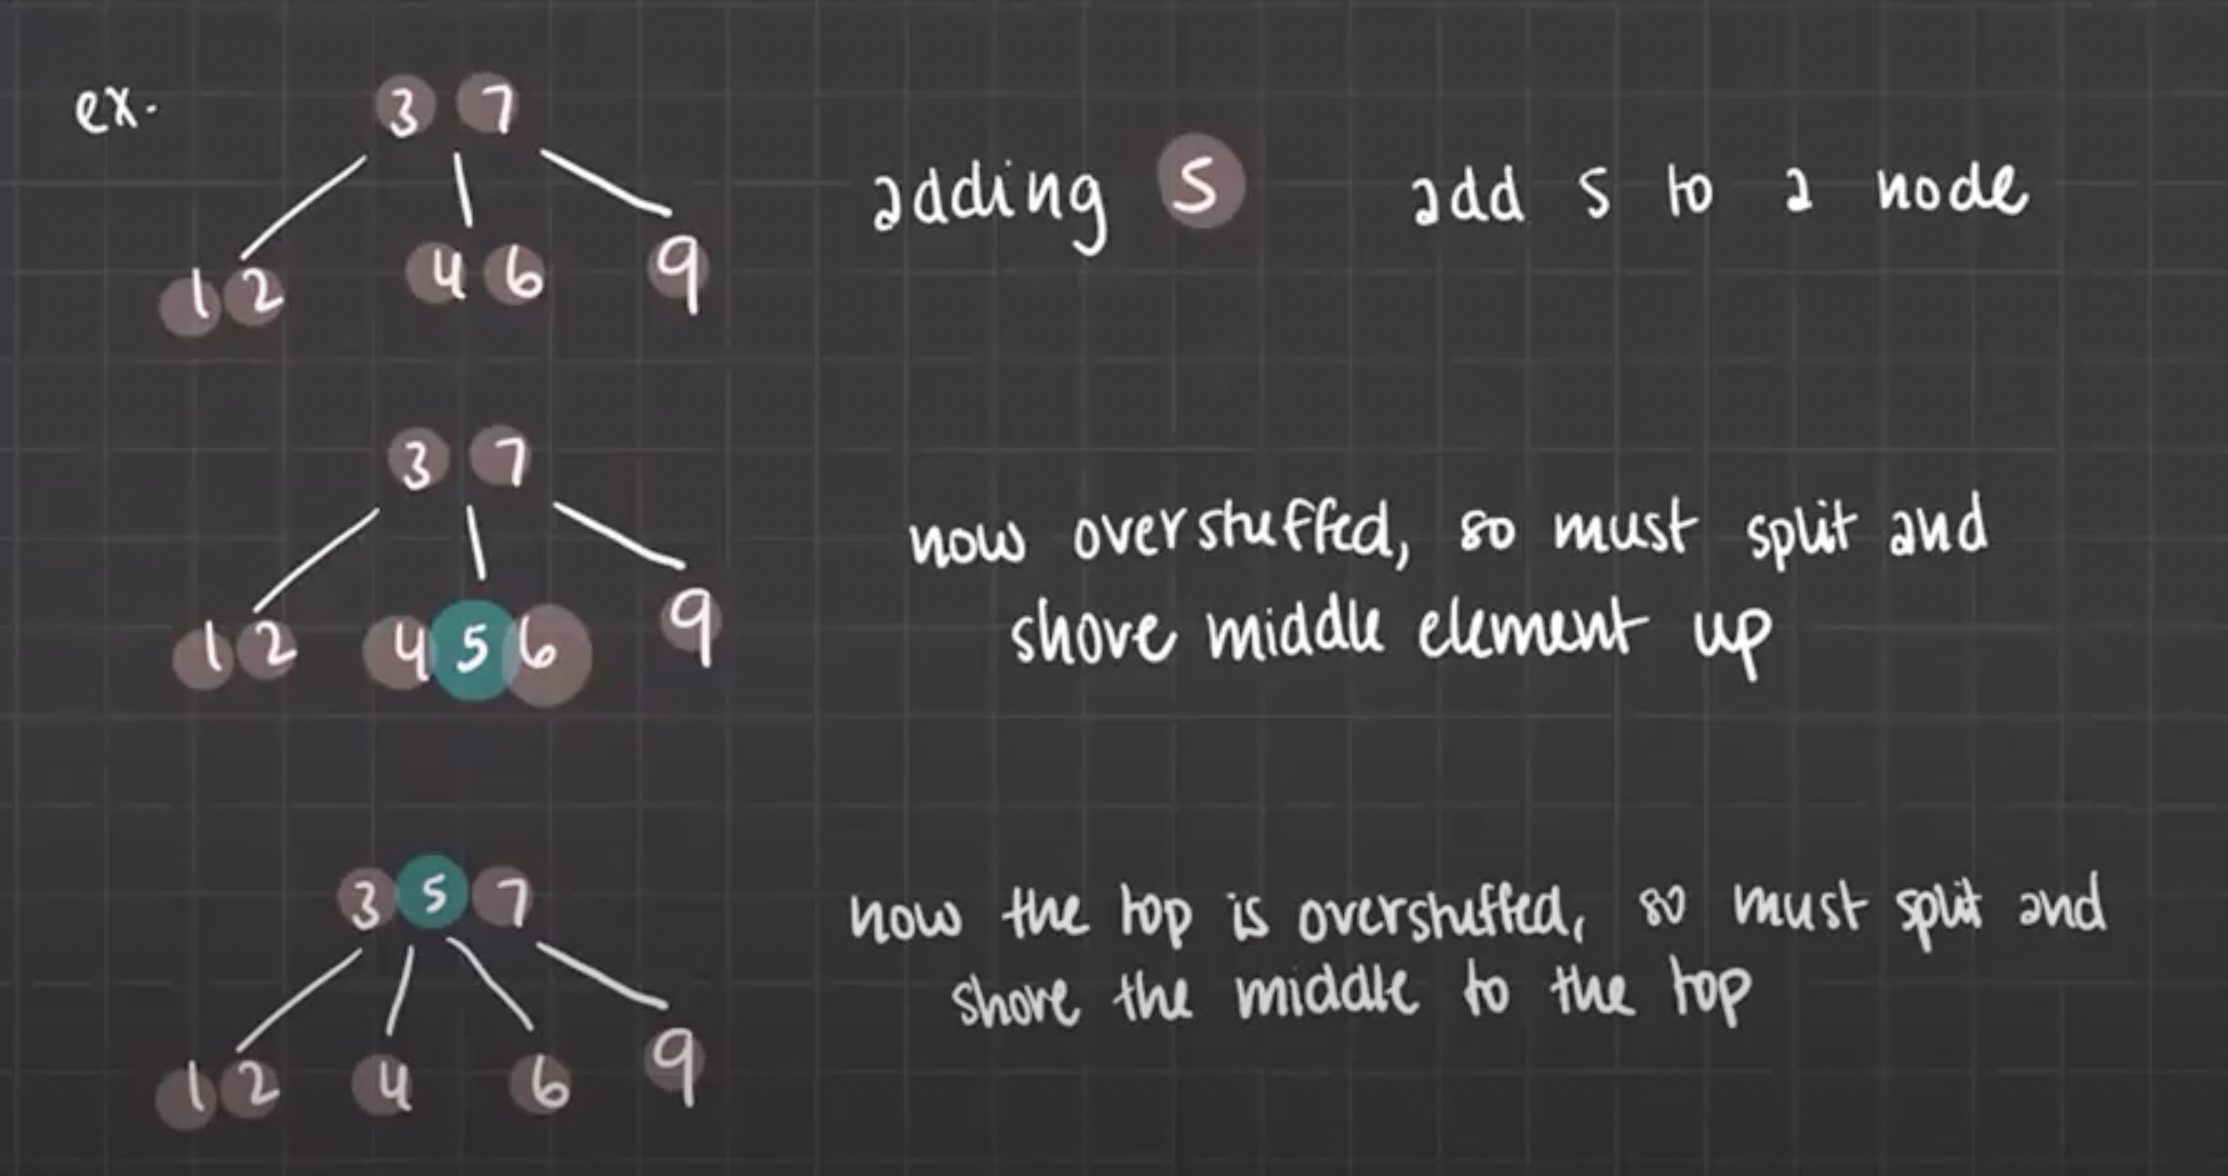 ex.
3 7
1 2 4 6 9
adding 5 add 5 to a node
3 7
1 2 4 5 6 9
now overstuffed, so must split and
shove middle element up
3 5 7
1 2 4 6 9
now the top is overstuffed, so must split and
shove the middle to the top